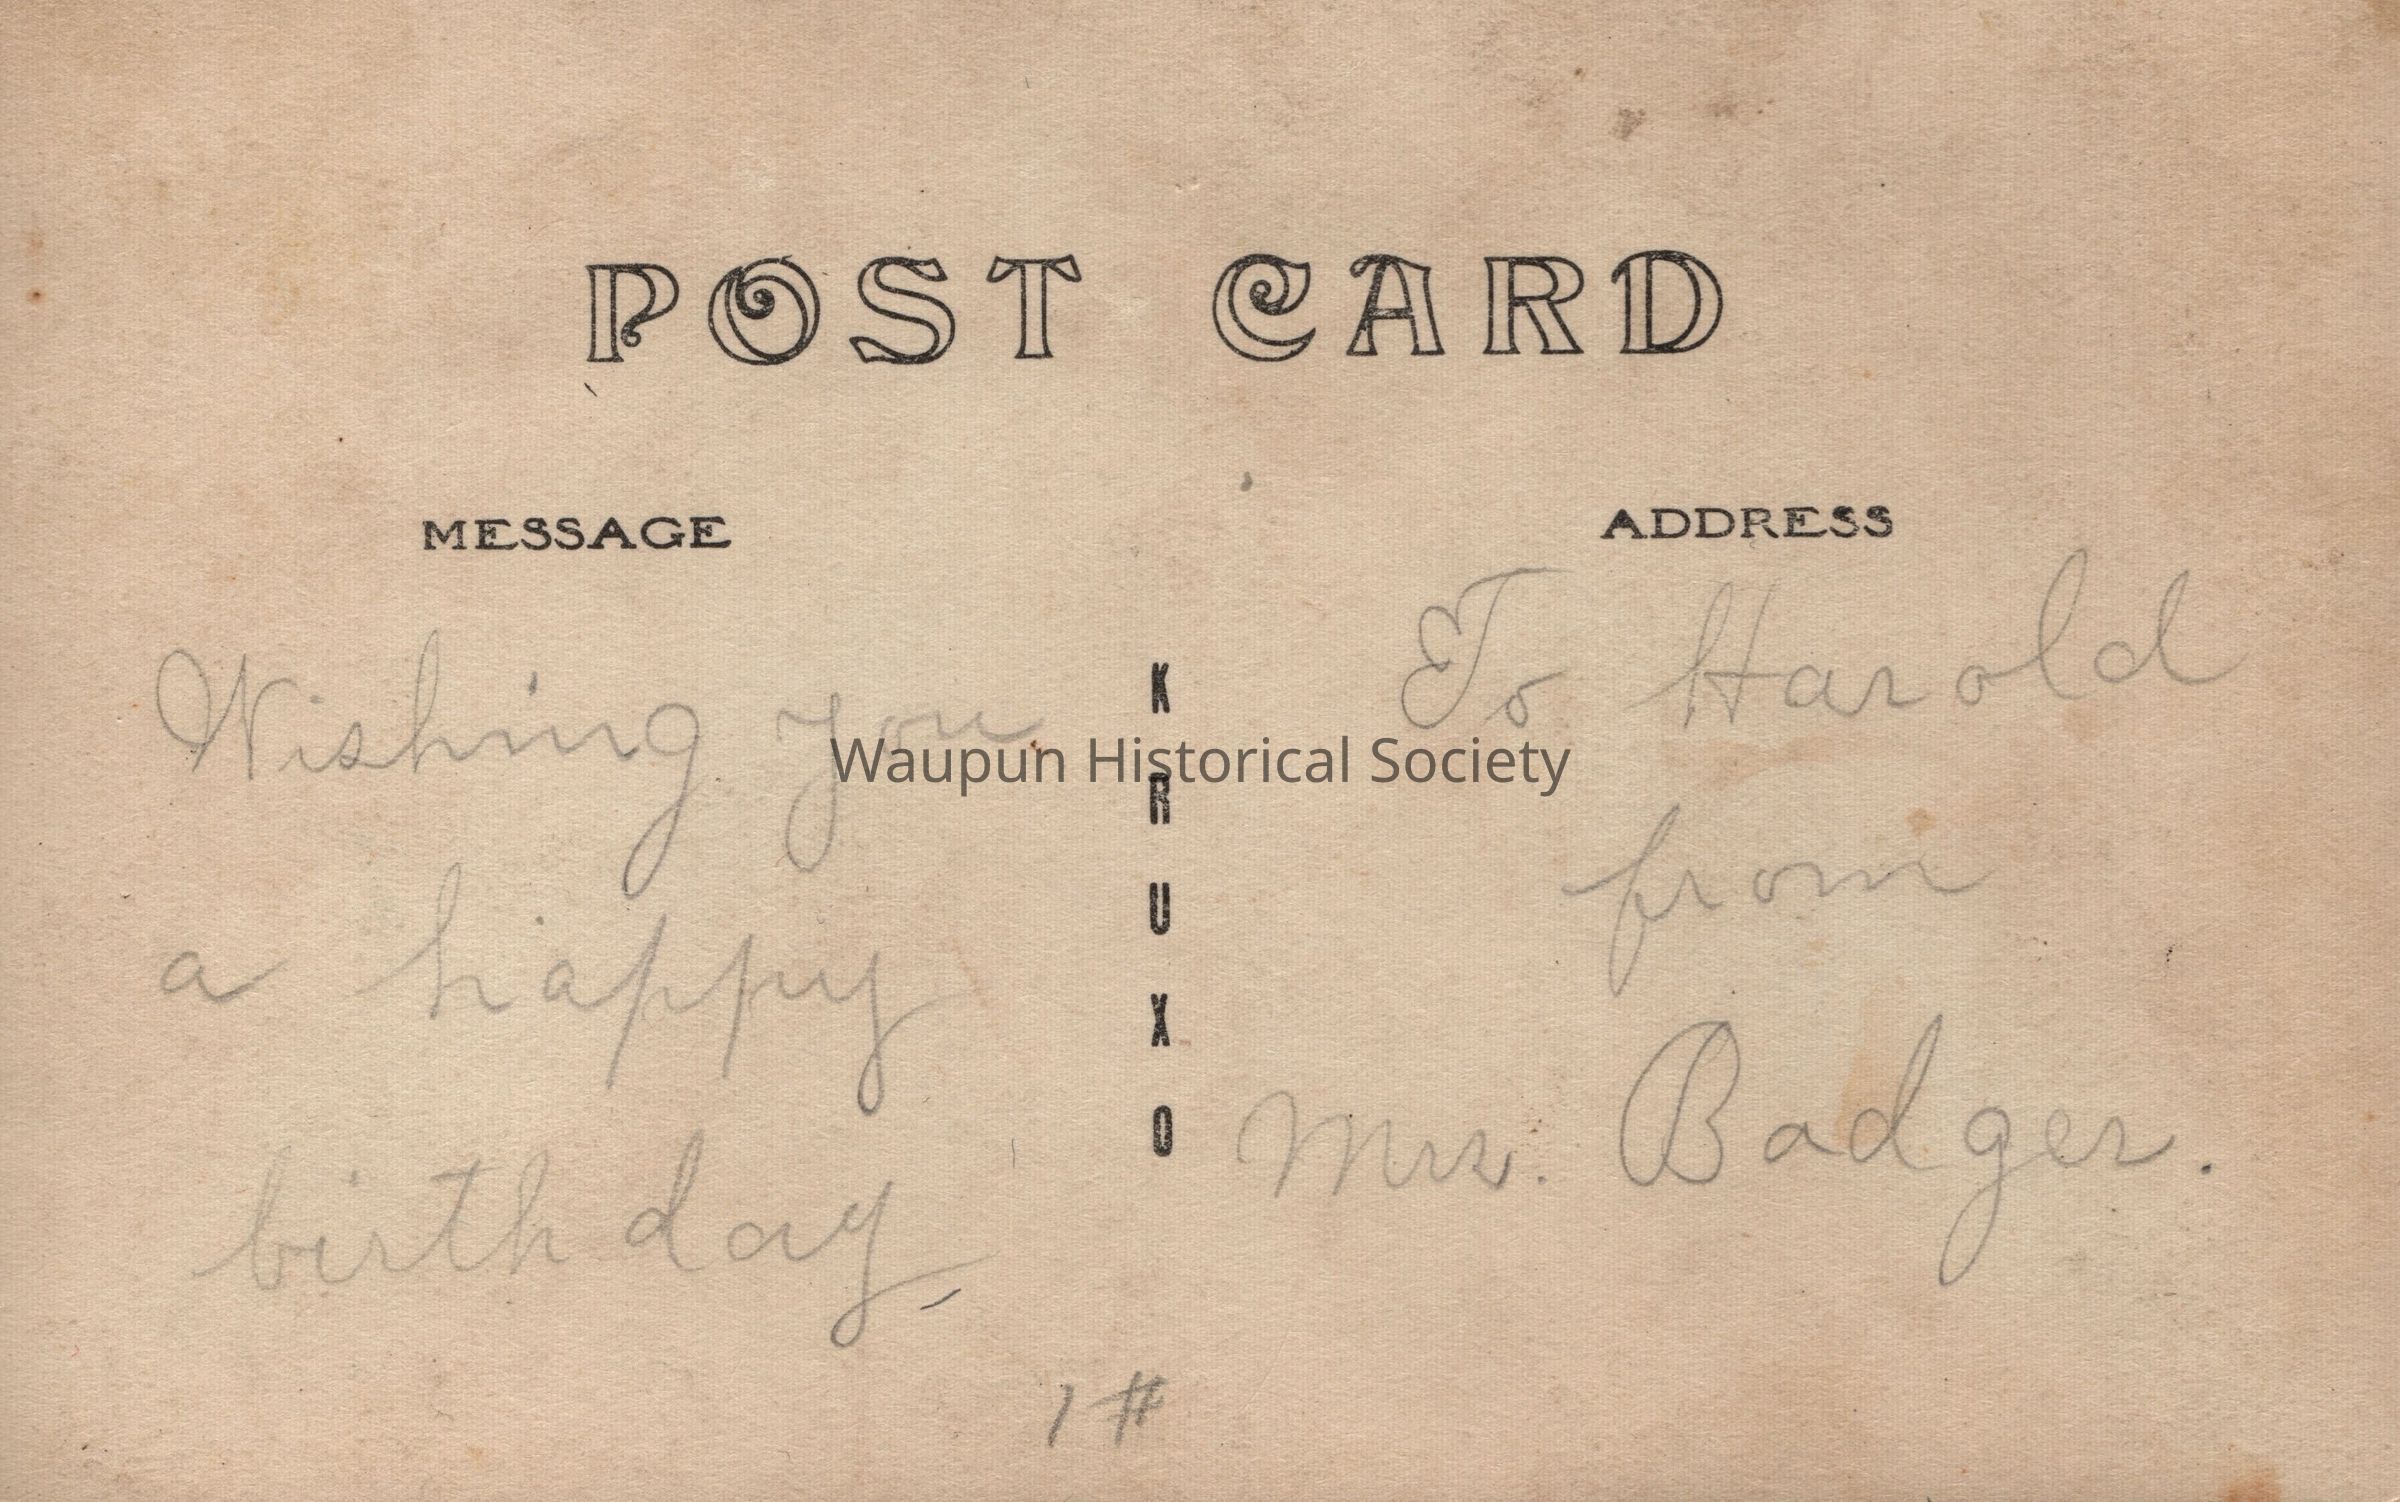 POST CARD
MESSAGE
Wishing you
a happy
birthday
KRUXO
ADDRESS
To Harold
from
Mrs. Badger.
1 #
Waupun Historical Society